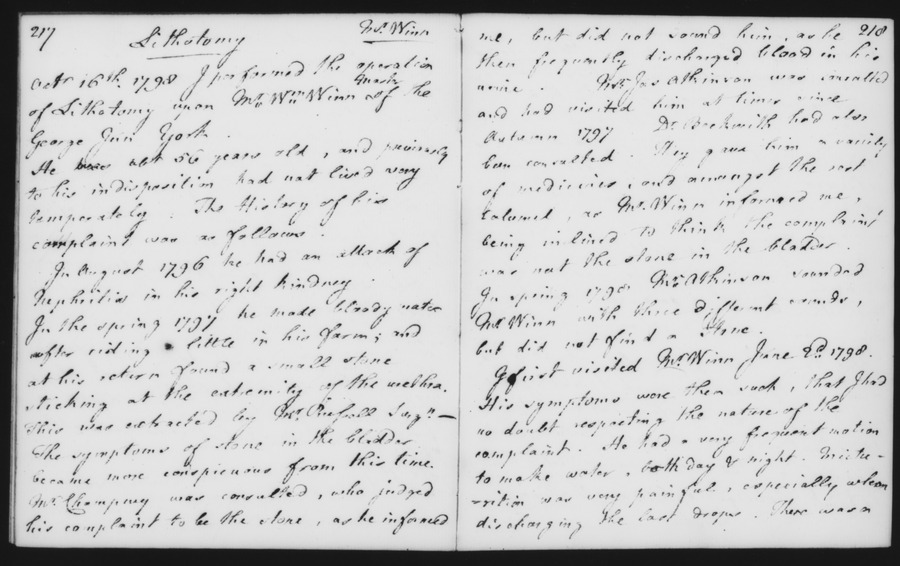 217
Lithotomy
Mr. Winn
Octr. 16th. 1798 I performed the operation
of Lithotomy upon Mr. Wm. Winn of the
George Inn York.
He was abt 56 years old, and previously
to his indisposition had not lived very
temperately. The History of his
complaint was as follows.
In August 1796 he had an attack of
Nephritis in his right kindney.
In the spring 1797 he made bloody water
after riding a little in his farm; and
at his return found a small stone
sticking at the extremity of the urethra.
This was extracted by Mr. Surgn. —
The symptoms of stone in the bladder
became more conspicuous from this time.
Mr. Champney was consulted, who judged
his complaint to be the stone, as he informed
218
me, but did not sound him, as he
then frequently discharged blood in his
urine. Mr. Jas Atkinson was consulted
and had visited him at times since
Autumn 1797. Dr. Beckwith had also
been consulted. They gave him a variety
of medicines, and amongst the rest
Calomel, as Mr. Winn informed me,
being inclined to think the complaint
was not the stone in the bladder.
In spring 1798 Mr. Atkinson sounded
Mr Winn with three different sounds,
but did not find a Stone.
I first visited Mr. Winn June 2d. 1798.
His symptoms were then such, that I had
no doubt respecting the nature of the
complaint. He had a very frequent motion
to make water, both day & night. Mictu-
-rition was very painful, especially when
discharging the last drops. There was a